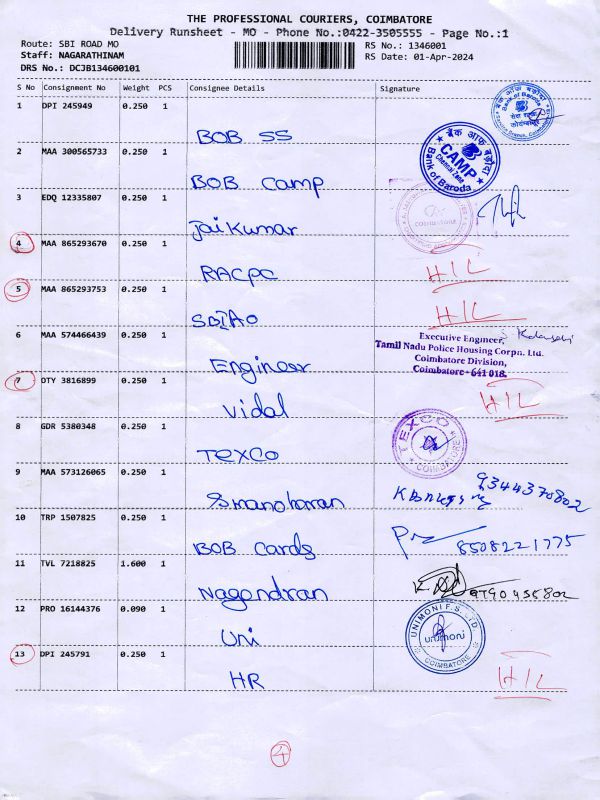 THE PROFESSIONAL COURIERS, COIMBATORE
Delivery Runsheet - MO - Phone No.:0422-3505555 - Page No.:1
Route: SBI ROAD MO
RS No.: 1346001
Staff: NAGARATHINAM
RS Date: 01-Apr-2024
DRS No.: DCJB134600101
S No Consignment No Weight PCS Consignee Details Signature
1 DPI 245949 0.250 1
BOB SS
बैंक ऑफ़ बड़ौदा
Bank of Baroda
2 MAA 300565733 0.250 1
BOB Camp
बैंक ऑफ़ बड़ौदा
CAMP
Chennai Zone
Bank of Baroda
3 EDQ 12335807 0.250 1
Jaikumar
COIMBATORE
4 MAA 865293670 0.250 1
RACPC
HIL
5 MAA 865293753 0.250 1
SBIAO
HIL
6 MAA 574466439 0.250 1
Engineer
Executive Engineer,
Tamil Nadu Police Housing Corpn. Ltd.
Coimbatore Division,
Coimbatore - 641 018.
7 DTY 3816899 0.250 1
Vidal
HIL
8 GDR 5380348 0.250 1
TEXCO
TEXCO
COIMBATORE
9 MAA 573126065 0.250 1
Smanoharan
9344370802
10 TRP 1507825 0.250 1
BOB Cards
8508221775
11 TVL 7218825 1.600 1
Nagendran
9790458802
12 PRO 16144376 0.090 1
Uni
UNIMONI F.S. LTD
unimoni
COIMBATORE
13 DPI 245791 0.250 1
HR
HIL
4